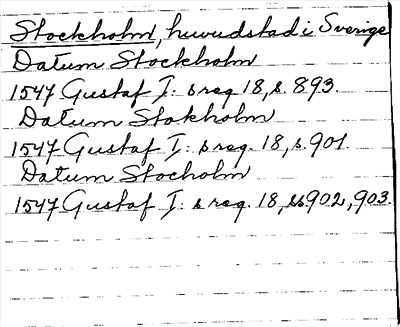 Stockholm, huvudstad i Sverige
Datum Stockholm
1547 Gustaf I: s reg. 18, s. 893.
Datum Stokholm
1547 Gustaf I: s reg. 18, s. 901.
Datum Stocholm
1547 Gustaf I: s reg. 18, ss 902, 903.